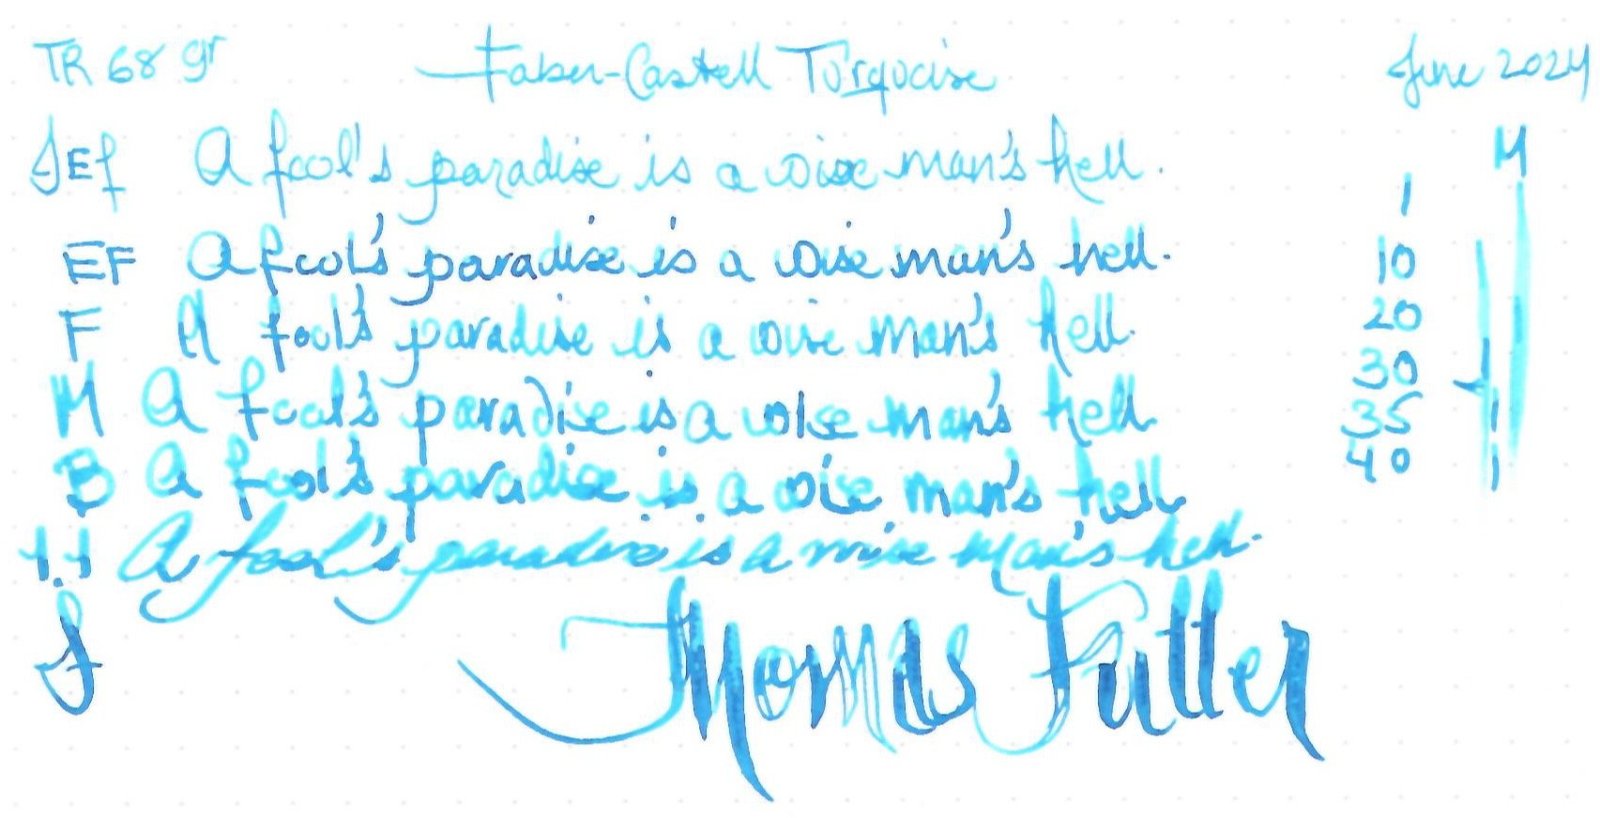 TR 68 gr Faber-Castell Turquoise June 2024
JEf A fool's paradise is a wise man's hell.
EF A fool's paradise is a wise man's hell.
F A fool's paradise is a wise man's hell.
M A fool's paradise is a wise man's hell
B A fool's paradise is a wise man's hell
1.1 A fool's paradise is a wise man's hell.
J Thomas Fuller
M
1
10
20
30
35
40